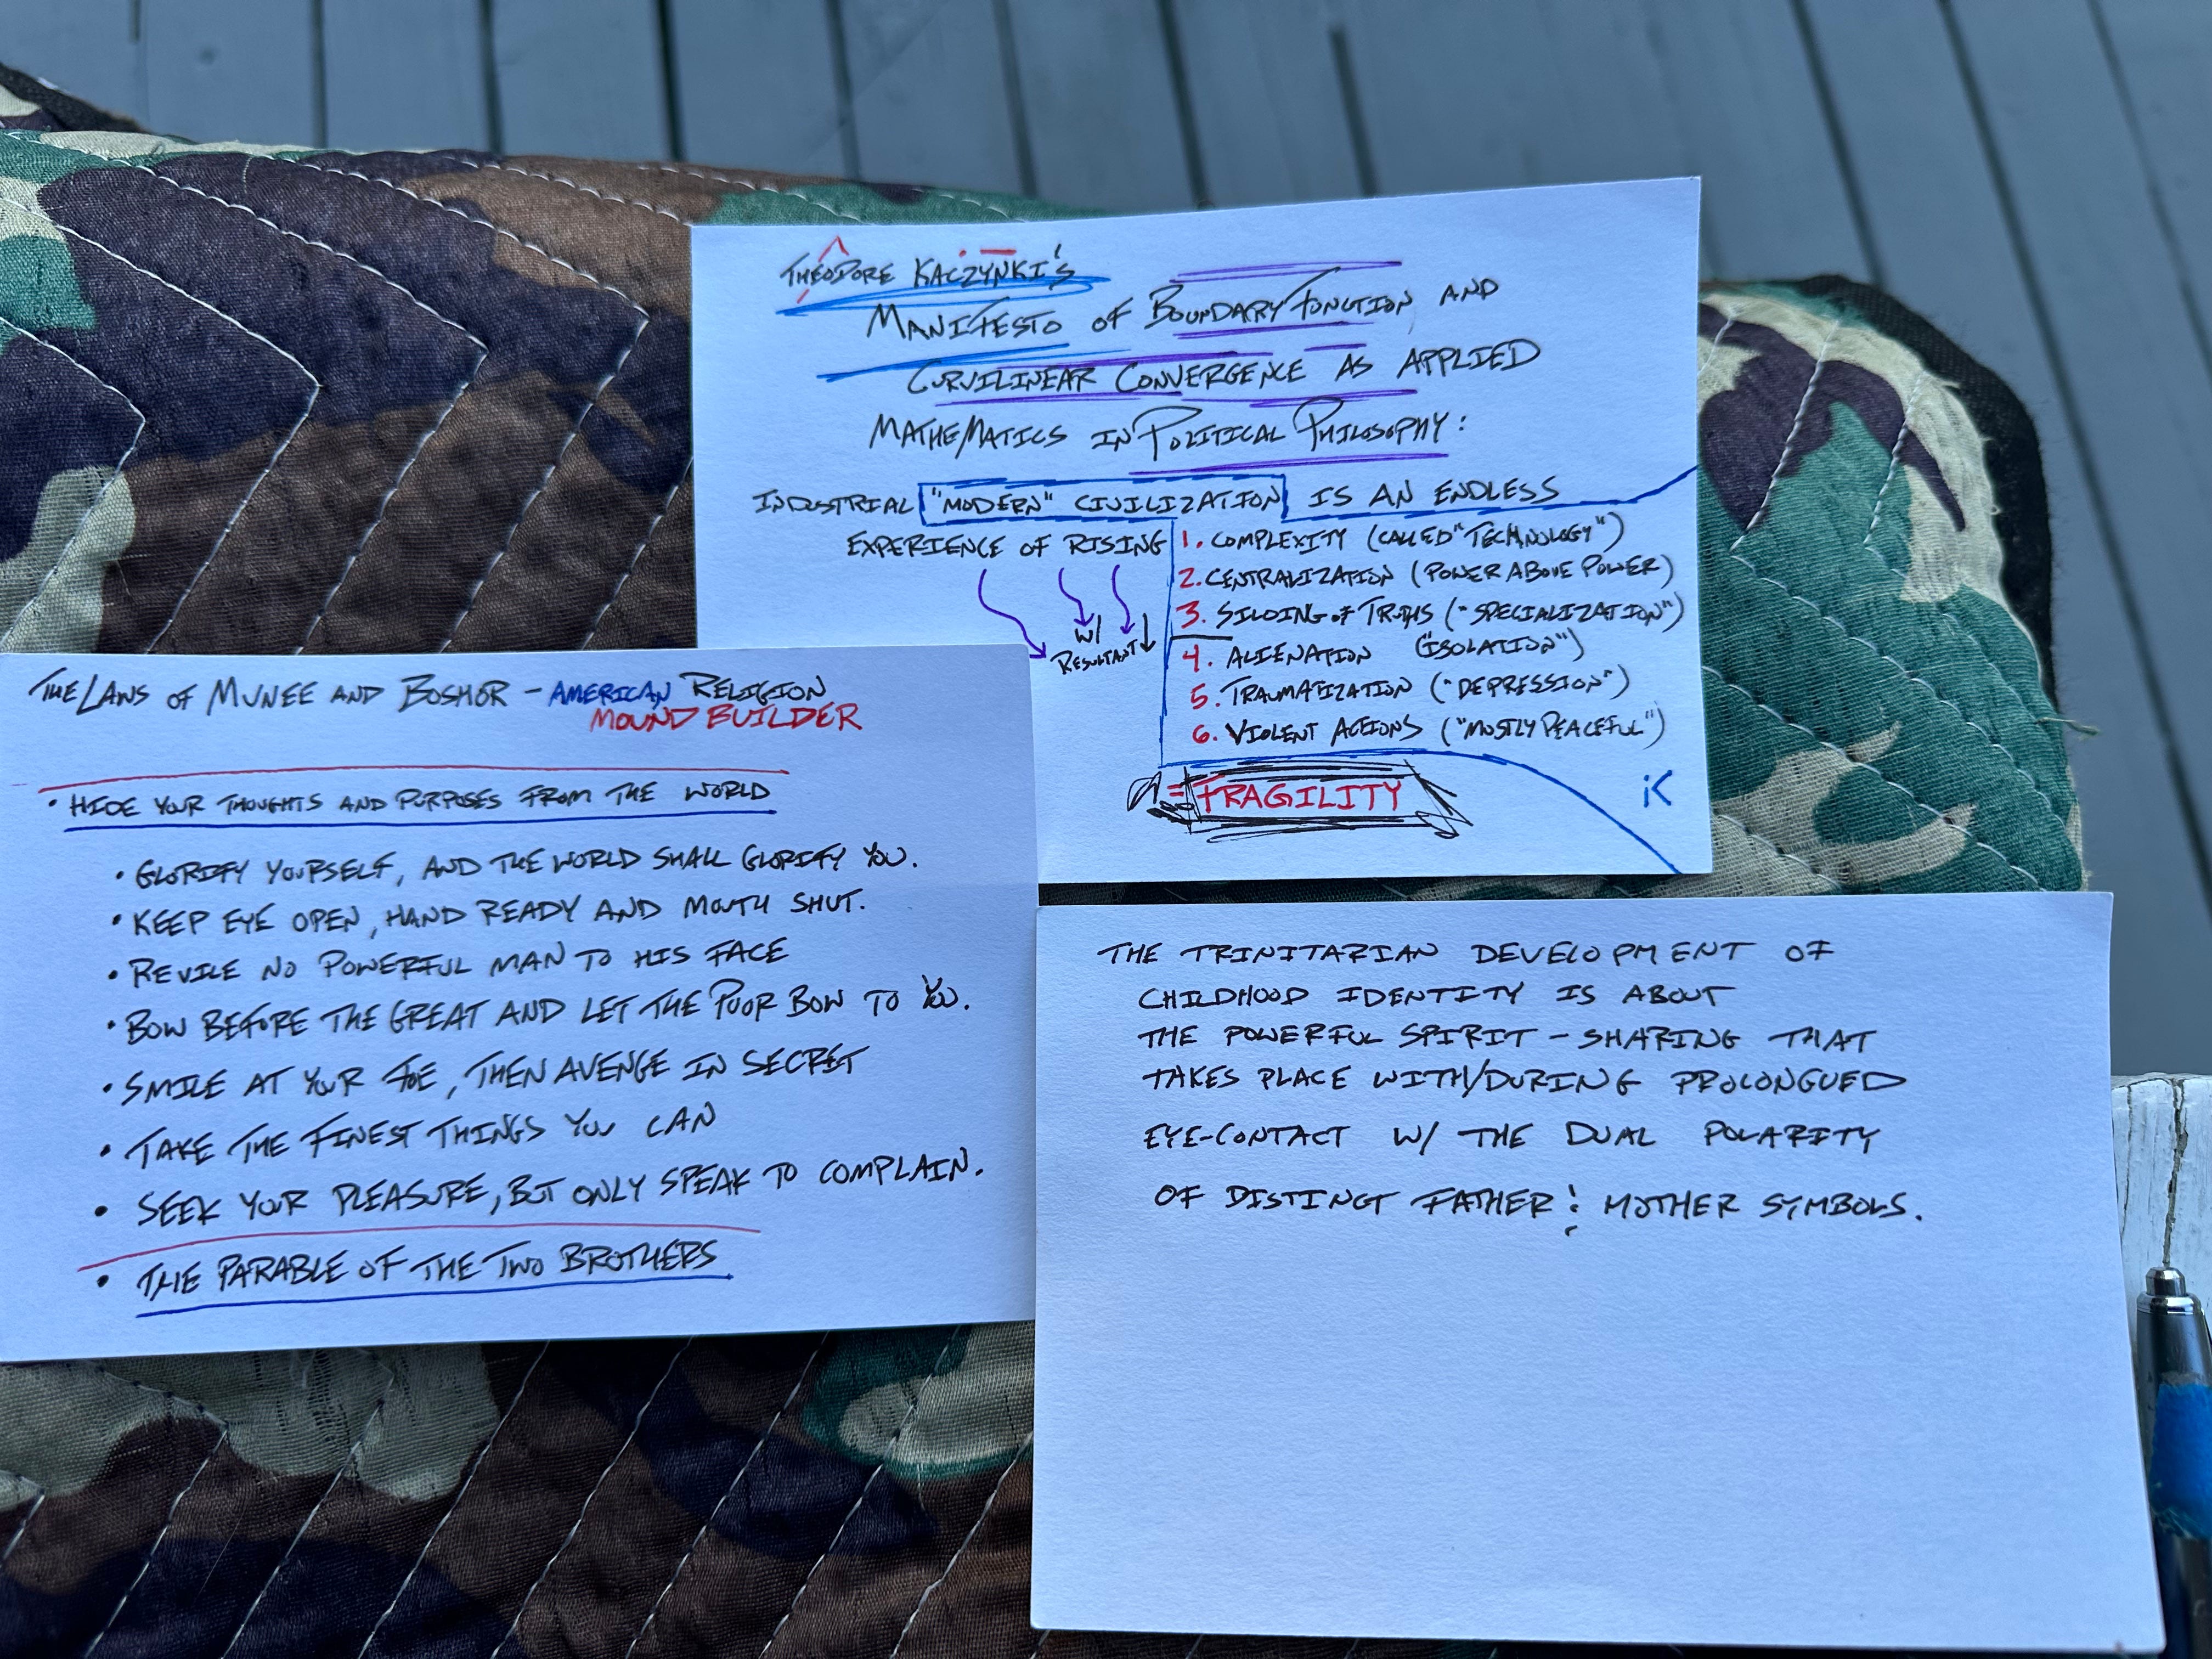 THEODORE KACZYNKI'S
MANIFESTO OF BOUNDARY FUNCTION AND
CURVILINEAR CONVERGENCE AS APPLIED
MATHEMATICS IN POLITICAL PHILOSOPHY:
INDUSTRIAL "MODERN" CIVILIZATION IS AN ENDLESS
EXPERIENCE OF RISING
1. COMPLEXITY (CALLED "TECHNOLOGY")
2. CENTRALIZATION (POWER ABOVE POWER)
3. SILOING OF TRUTHS ("SPECIALIZATION")
W/
RESULTANT
4. ALIENATION ("ISOLATION")
5. TRAUMATIZATION ("DEPRESSION")
6. VIOLENT ACTIONS ("MOSTLY PEACEFUL")
= FRAGILITY
iK
THE LAWS OF MUNEE AND BOSHOR - AMERICAN RELIGION
MOUND BUILDER
• HIDE YOUR THOUGHTS AND PURPOSES FROM THE WORLD
• GLORIFY YOURSELF, AND THE WORLD SHALL GLORIFY YOU.
• KEEP EYE OPEN, HAND READY AND MOUTH SHUT.
• REVILE NO POWERFUL MAN TO HIS FACE
• BOW BEFORE THE GREAT AND LET THE POOR BOW TO YOU.
• SMILE AT YOUR FOE, THEN AVENGE IN SECRET
• TAKE THE FINEST THINGS YOU CAN
• SEEK YOUR PLEASURE, BUT ONLY SPEAK TO COMPLAIN.
• THE PARABLE OF THE TWO BROTHERS
THE TRINITARIAN DEVELOPMENT OF
CHILDHOOD IDENTITY IS ABOUT
THE POWERFUL SPIRIT-SHARING THAT
TAKES PLACE WITH/DURING PROLONGUED
EYE-CONTACT W/ THE DUAL POLARITY
OF DISTINCT FATHER : MOTHER SYMBOLS.